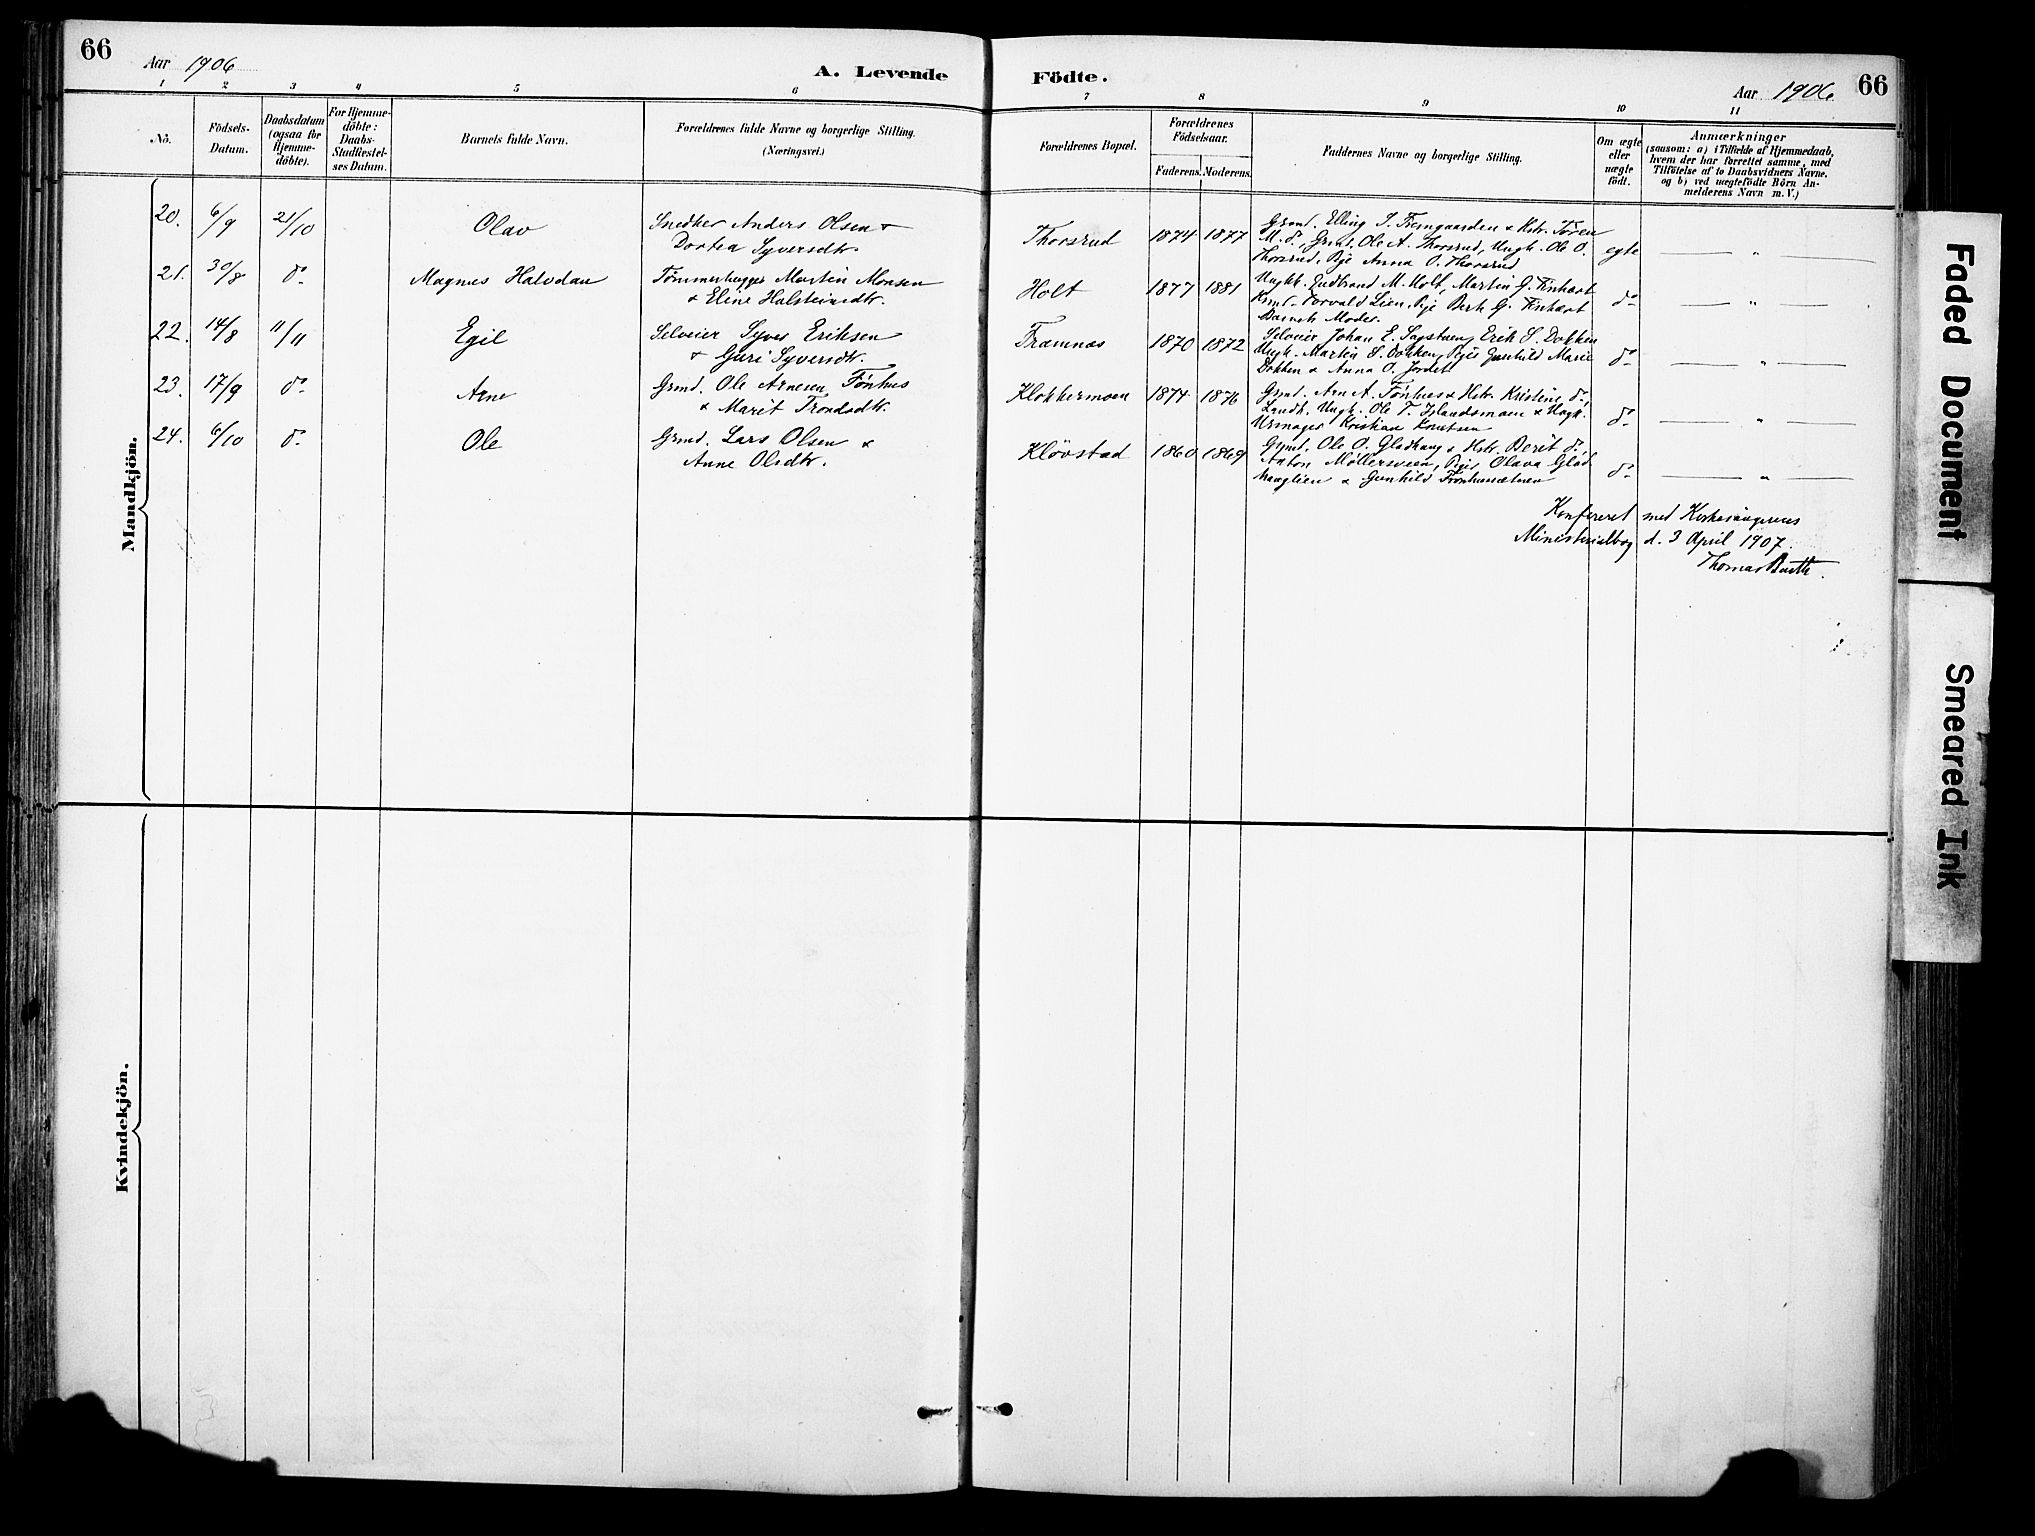 66
Aar 1906
A. Levende
Födte.
Aar 1906
66
1 2 3 4 5 6 7 8 9 10 11
No.
Födsels-
Datum.
Daabsdatum
(ogsaa for
Hjemme-
döbte).
For Hjemme-
döbte:
Daabs-
Stadfæstel-
ses Datum.
Barnets fulde Navn.
Forældrenes fulde Navne og borgerlige Stilling.
(Næringsvei.)
Forældrenes Bopæl.
Forældrenes
Födselsaar.
Faderens. Moderens.
Faddernes Navne og borgerlige Stilling.
Om ægte
eller
uægte
födt.
Anmærkninger
(saasom: a) i Tilfælde af Hjemmedaab,
hvem der har forrettet samme, med
Tilföielse af to Daabsvidners Navne.
og b) ved uægtefödte Börn An-
melderens Navn m. V.)
Mandkjön.
20. 6/9 21/10 Olav
Snedker Anders Olsen &
Dortea Syversdtr.
Thorsrud 1874 1877
Grmd. Elling S. Fremgaarden & Hstr. Tören
M. do, Grmd. Ole A. Thorsrud, Ungk. Ole O.
Thorsrud, Pige Anna O. Thorsrud
egte "
21. 30/8 do Magnus Halvdan
Tømmerhugger Martin Monsen
& Eline Halsteinsdtr.
Holt 1877 1881
Ungk. Gudbrand M. Holt, Martin G. Finhært
Grmd. Torvald Lien, Pige Berte G. Finhært
Barnets Moder.
do "
22. 14/8 11/11 Egil
Selveier Syver Eriksen
& Guri Syversdtr.
Framnæs 1870 1872
Selveier Johan E. Sagstuen, Erik S. Dokken
Ungk. Martin S. Dokken, Piger Gunhild Marie
Dokken & Anna O. Jordet
do "
23. 17/9 do Arne
Grmd. Ole Arnesen Fönhus
& Marit Trondsdtr.
Klokkermoen 1874 1876
Grmd. Arn A. Fönhus & Hstr. Kristine do
Landh. Ungk. Ole T. Islandsmoen & Ungk.
Urmager Kristian Knutsen
do "
24. 6/10 do Ole
Grmd. Lars Olsen &
Anne Olsdtr.
Klövstad 1860 1869
Grmd. Ole O. Gladhaug & Hstr. Berit do,
Anton Møllersveen, Piger Olava Glad
hauglien & Gunhild Fönhussætren
do "
Konfereret med Kirkesangerens
Ministerialbog d. 3 April 1907.
Thomas Barth.
Kvindekjön.
Faded Document
Smeared Ink